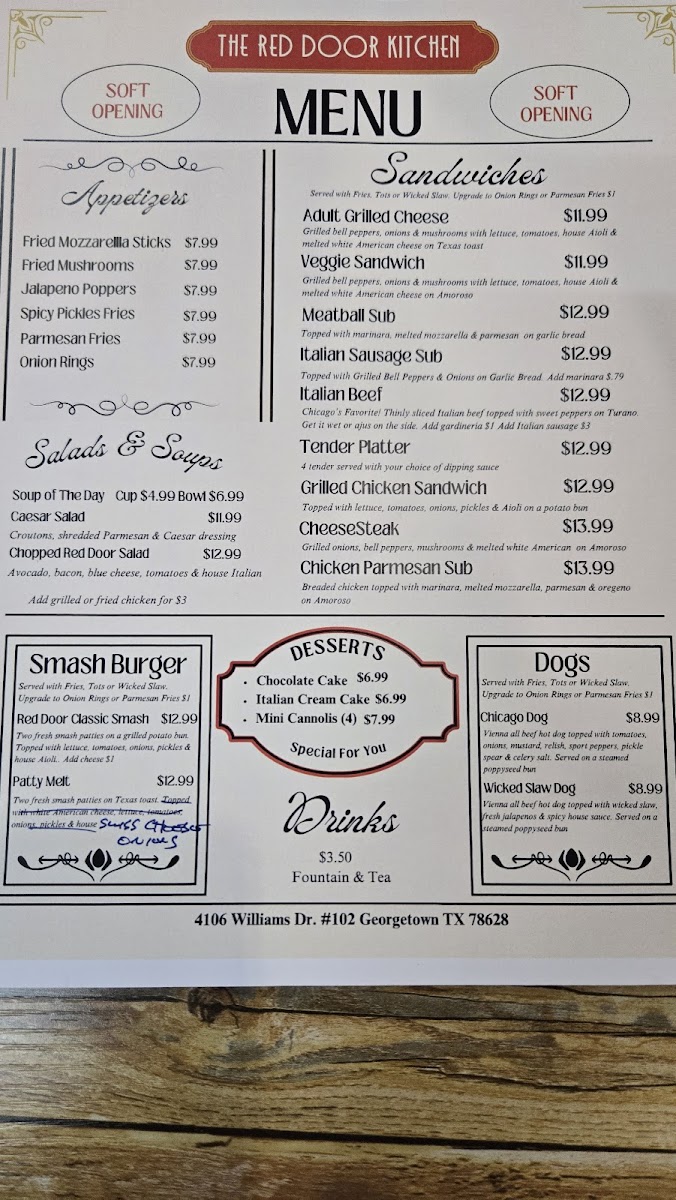 THE RED DOOR KITCHEN
SOFT
OPENING
MENU
SOFT
OPENING
Appetizers
Fried Mozzarellla Sticks $7.99
Fried Mushrooms $7.99
Jalapeno Poppers $7.99
Spicy Pickles Fries $7.99
Parmesan Fries $7.99
Onion Rings $7.99
Salads & Soups
Soup of The Day Cup $4.99 Bowl $6.99
Caesar Salad $11.99
Croutons, shredded Parmesan & Caesar dressing
Chopped Red Door Salad $12.99
Avocado, bacon, blue cheese, tomatoes & house Italian
Add grilled or fried chicken for $3
Sandwiches
Served with Fries, Tots or Wicked Slaw. Upgrade to Onion Rings or Parmesan Fries $1
Adult Grilled Cheese $11.99
Grilled bell peppers, onions & mushrooms with lettuce, tomatoes, house Aioli &
melted white American cheese on Texas toast
Veggie Sandwich $11.99
Grilled bell peppers, onions & mushrooms with lettuce, tomatoes, house Aioli &
melted white American cheese on Amoroso
Meatball Sub $12.99
Topped with marinara, melted mozzarella & parmesan on garlic bread
Italian Sausage Sub $12.99
Topped with Grilled Bell Peppers & Onions on Garlic Bread. Add marinara $.79
Italian Beef $12.99
Chicago's Favorite! Thinly sliced Italian beef topped with sweet peppers on Turano.
Get it wet or ajus on the side. Add gardineria $1 Add Italian sausage $3
Tender Platter $12.99
4 tender served with your choice of dipping sauce
Grilled Chicken Sandwich $12.99
Topped with lettuce, tomatoes, onions, pickles & Aioli on a potato bun
CheeseSteak $13.99
Grilled onions, bell peppers, mushrooms & melted white American on Amoroso
Chicken Parmesan Sub $13.99
Breaded chicken topped with marinara, melted mozzarella, parmesan & oregeno
on Amoroso
Smash Burger
Served with Fries, Tots or Wicked Slaw.
Upgrade to Onion Rings or Parmesan Fries $1
Red Door Classic Smash $12.99
Two fresh smash patties on a grilled potato bun.
Topped with lettuce, tomatoes, onions, pickles &
house Aioli. Add cheese $1
Patty Melt $12.99
Two fresh smash patties on Texas toast. Topped
with white American cheese, lettuce, tomatoes,
onions, pickles & house Swiss Cheese
onions
DESSERTS
• Chocolate Cake $6.99
• Italian Cream Cake $6.99
• Mini Cannolis (4) $7.99
Special For You
Drinks
$3.50
Fountain & Tea
Dogs
Served with Fries, Tots or Wicked Slaw.
Upgrade to Onion Rings or Parmesan Fries $1
Chicago Dog $8.99
Vienna all beef hot dog topped with tomatoes,
onions, mustard, relish, sport peppers, pickle
spear & celery salt. Served on a steamed
poppyseed bun
Wicked Slaw Dog $8.99
Vienna all beef hot dog topped with wicked slaw,
fresh jalapenos & spicy house sauce. Served on a
steamed poppyseed bun
4106 Williams Dr. #102 Georgetown TX 78628